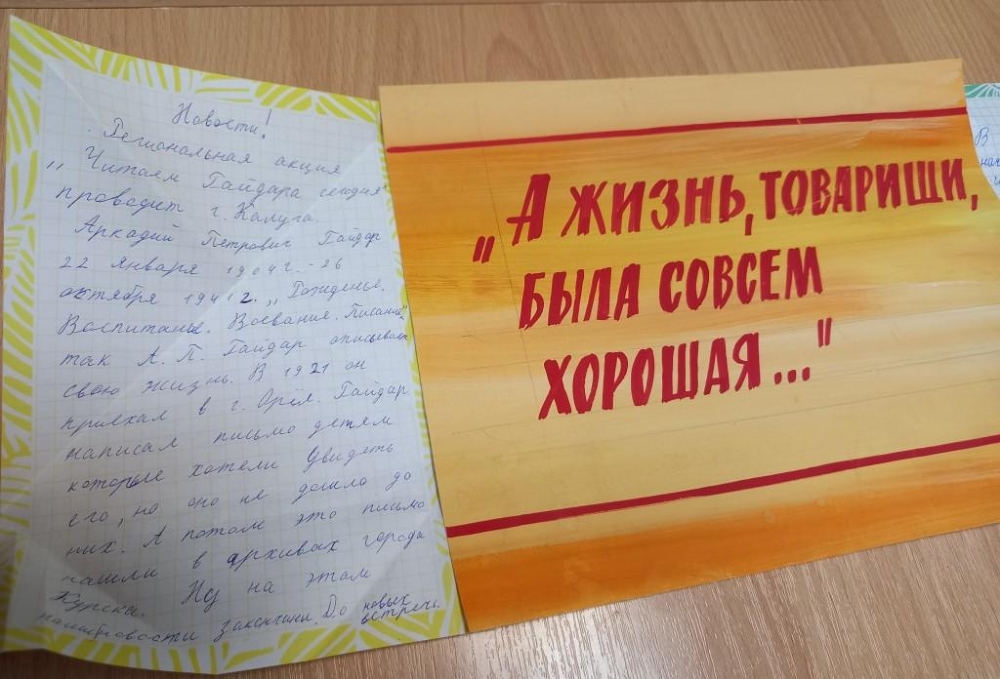 Новости!
Региональная акция
„Читаем Гайдара сегодня"
проводит г. Калуга.
Аркадий Петрович Гайдар
22 января 1904 г. - 26
октября 1941 г. „Рожденье.
Воспитанье. Воеванье. Писанье"
так А. П. Гайдар описывал
свою жизнь. В 1921 он
приехал в г. Орёл. Гайдар
написал письмо детям
которые хотели увидеть
его, но оно не дошло до
них. А потом это письмо
нашли в архивах города
Курска. Ну на этом
новости закончили. До новых
встреч.
„А ЖИЗНЬ, ТОВАРИЩИ,
БЫЛА СОВСЕМ
ХОРОШАЯ..."
В